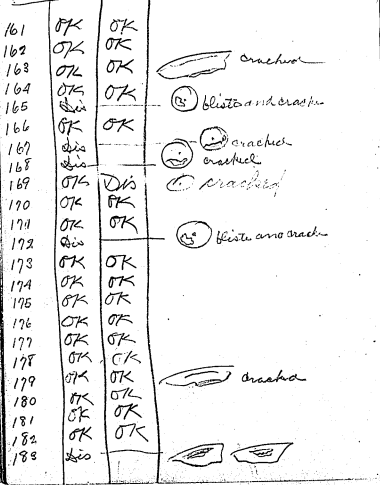 161 OK OK
162 OK OK
163 OK OK cracked
164 OK OK
165 Dis blists and cracks
166 OK OK
167 Dis cracked
168 Dis cracked
169 OK Dis cracked
170 OK OK
171 OK OK
172 Dis blists and cracks
173 OK OK
174 OK OK
175 OK OK
176 OK OK
177 OK OK
178 OK OK
179 OK OK cracked
180 OK OK
181 OK OK
182 OK OK
183 Dis